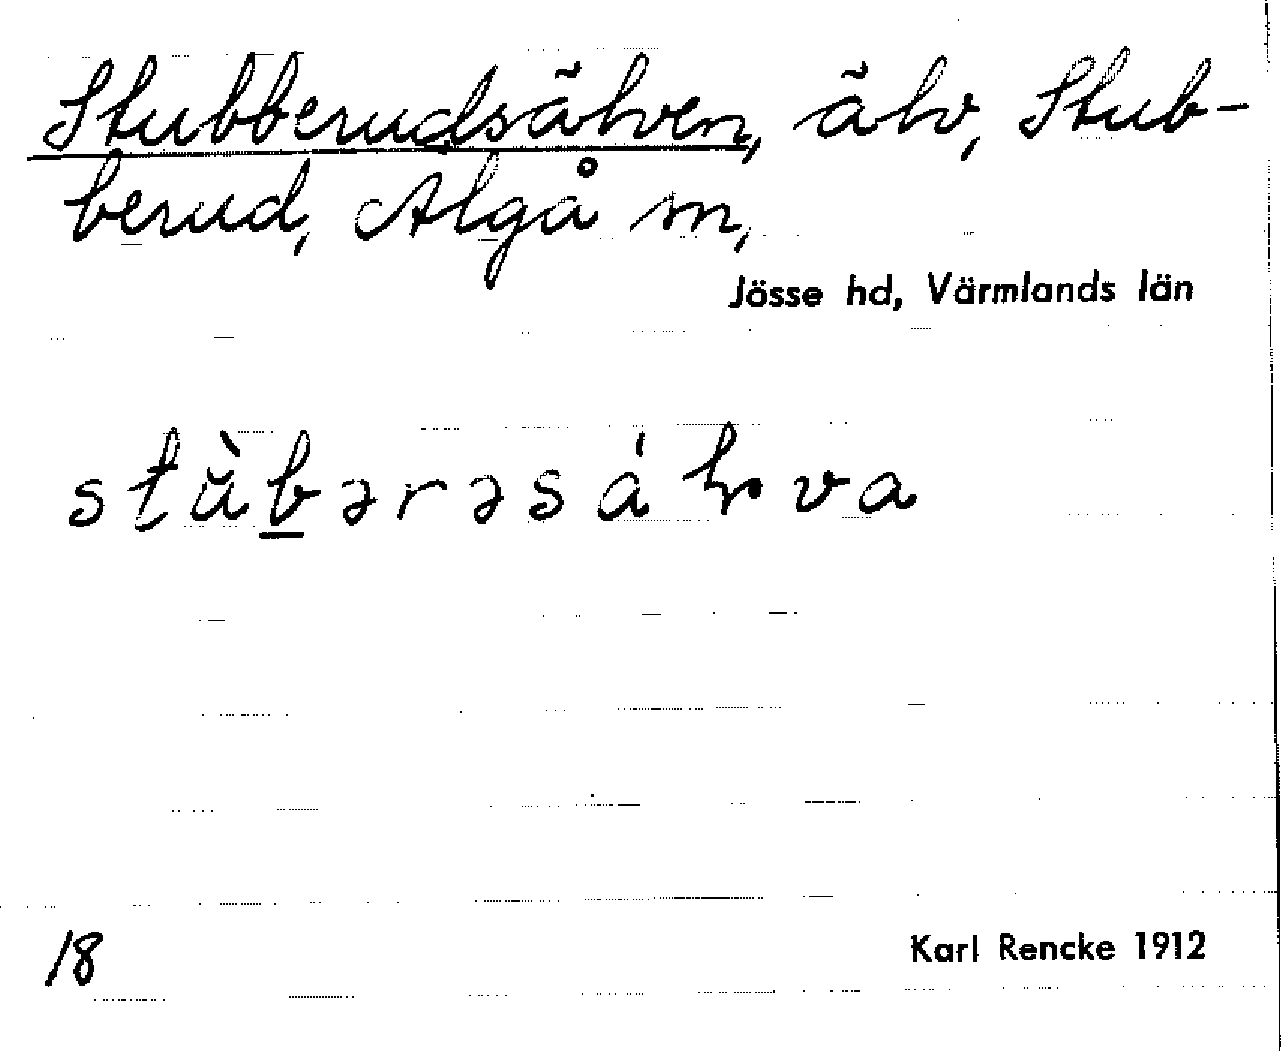 Stubberudsälven, älv, Stub-
berud, Algå sn,
Jösse hd, Värmlands län
stùbərəsálva
18
Karl Rencke 1912